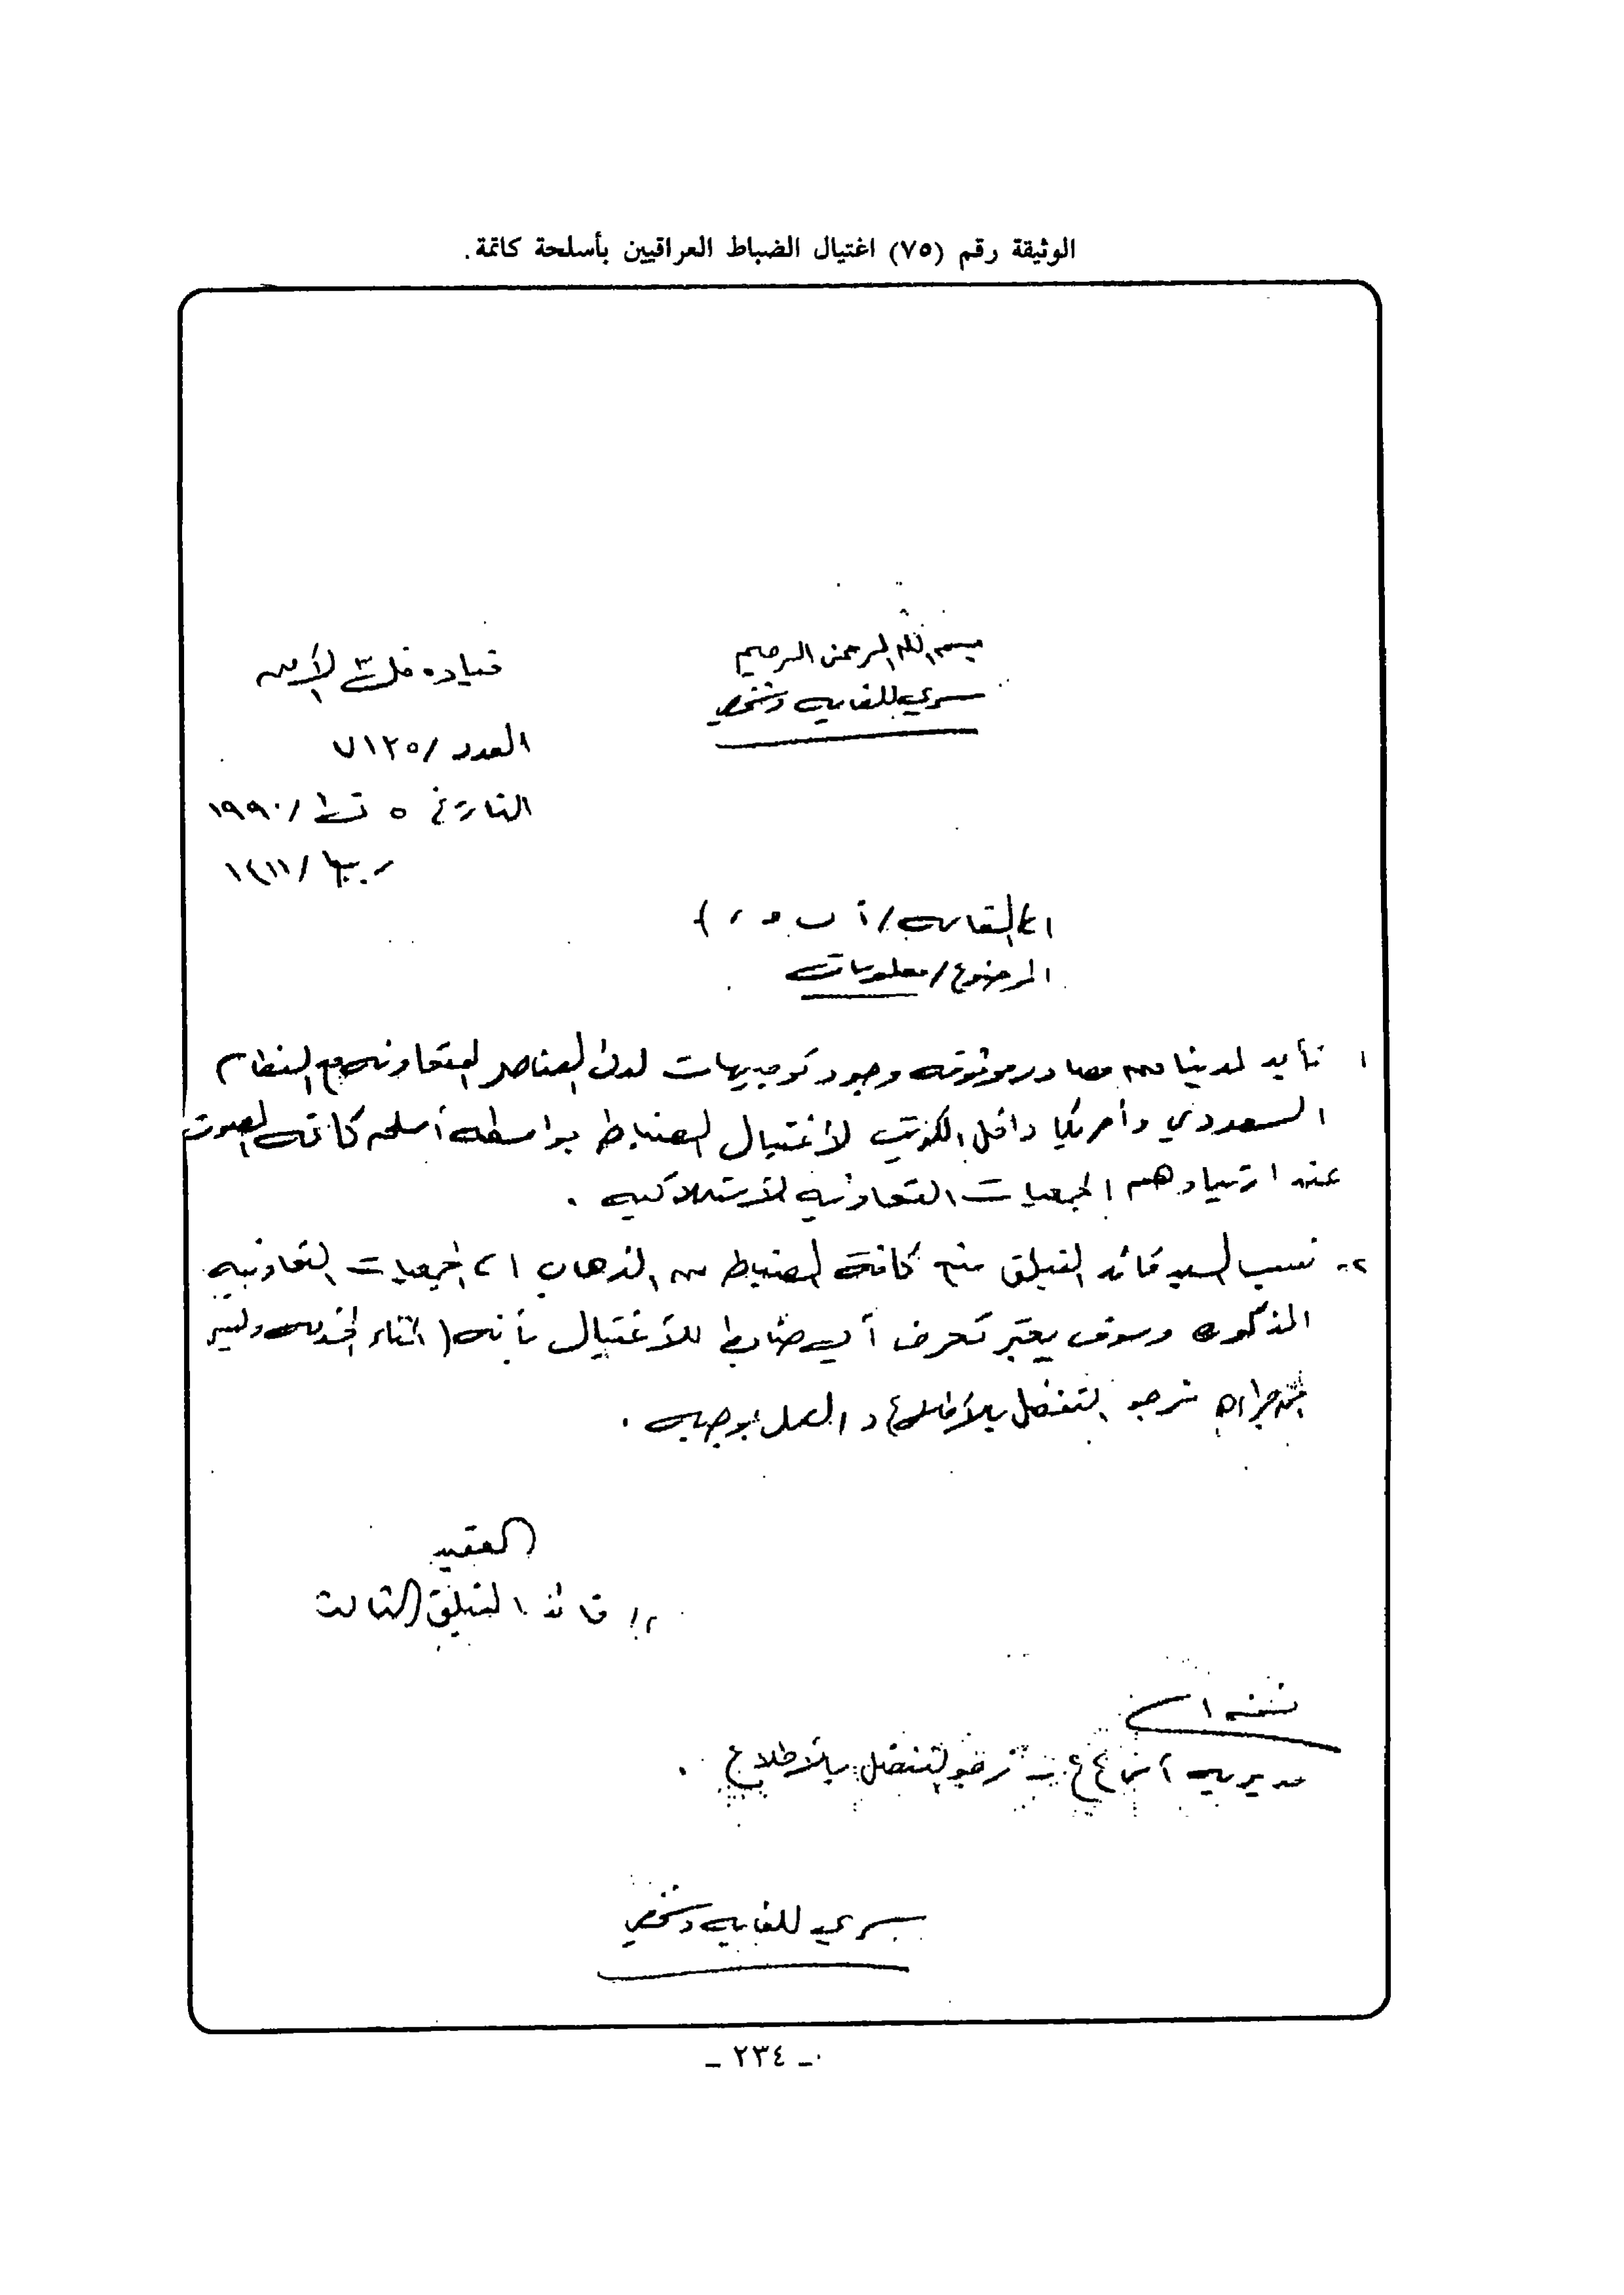 الوثيقة رقم (٧٥) اغتيال الضباط العراقيين بأسلحة كاتمة .
بسم الله الرحمن الرحيم
سري للغاية وشخصي
قيادة فل ٣ الأمن
العدد / ٧١٢٥
التاريخ ٥ ت١ / ١٩٩٠
١٤١١ /
الى القائمة / أ ب
الموضوع / معلومات
١ تأيد لدينا من مصادر موثوقه وجود توجيهات لدى العناصر المتعاونه مع النظام
السعودي وأمريكا داخل الكويت لأغتيال الضباط بواسطه أسلحه كاتمه الصوت
عند ارتيادهم الجمعيات التعاونيه الأستهلاكيه .
٢- نسب السيد قائد الفيلق منع كافة الضباط من الذهاب الى الجمعيات التعاونيه
المذكوره وسوف يعتبر تعرض أي ضابط للأغتيال بأنه ( اثناء الخدمه وليس
من جراءه نرجو التفضل بالأطلاع والعمل بموجبه .
العقيد
قائد الفيلق الثالث
نسخه الى
مديريه نرجو التفضل بالأطلاع .
سري للغايه وشخصي
- ٢٣٤ -